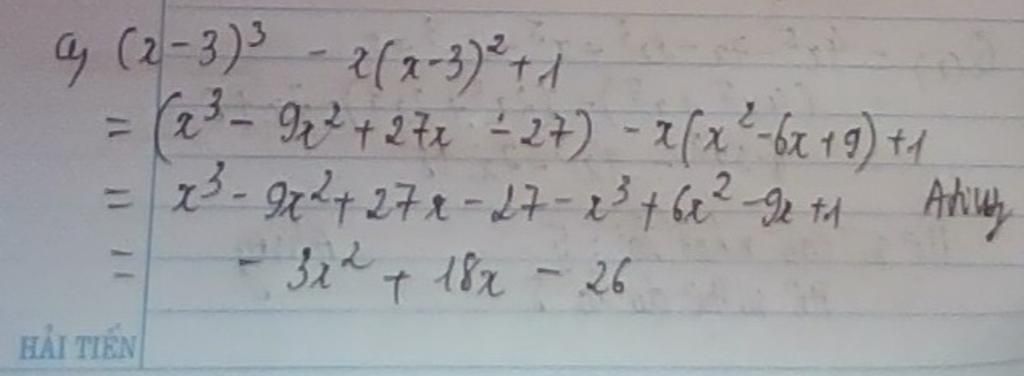 a, (x-3)³ - x(x-3)² + 1
= (x³ - 9x² + 27x - 27) - x(x² - 6x + 9) + 1
= x³ - 9x² + 27x - 27 - x³ + 6x² - 9x + 1
= - 3x² + 18x - 26
HẢI TIẾN